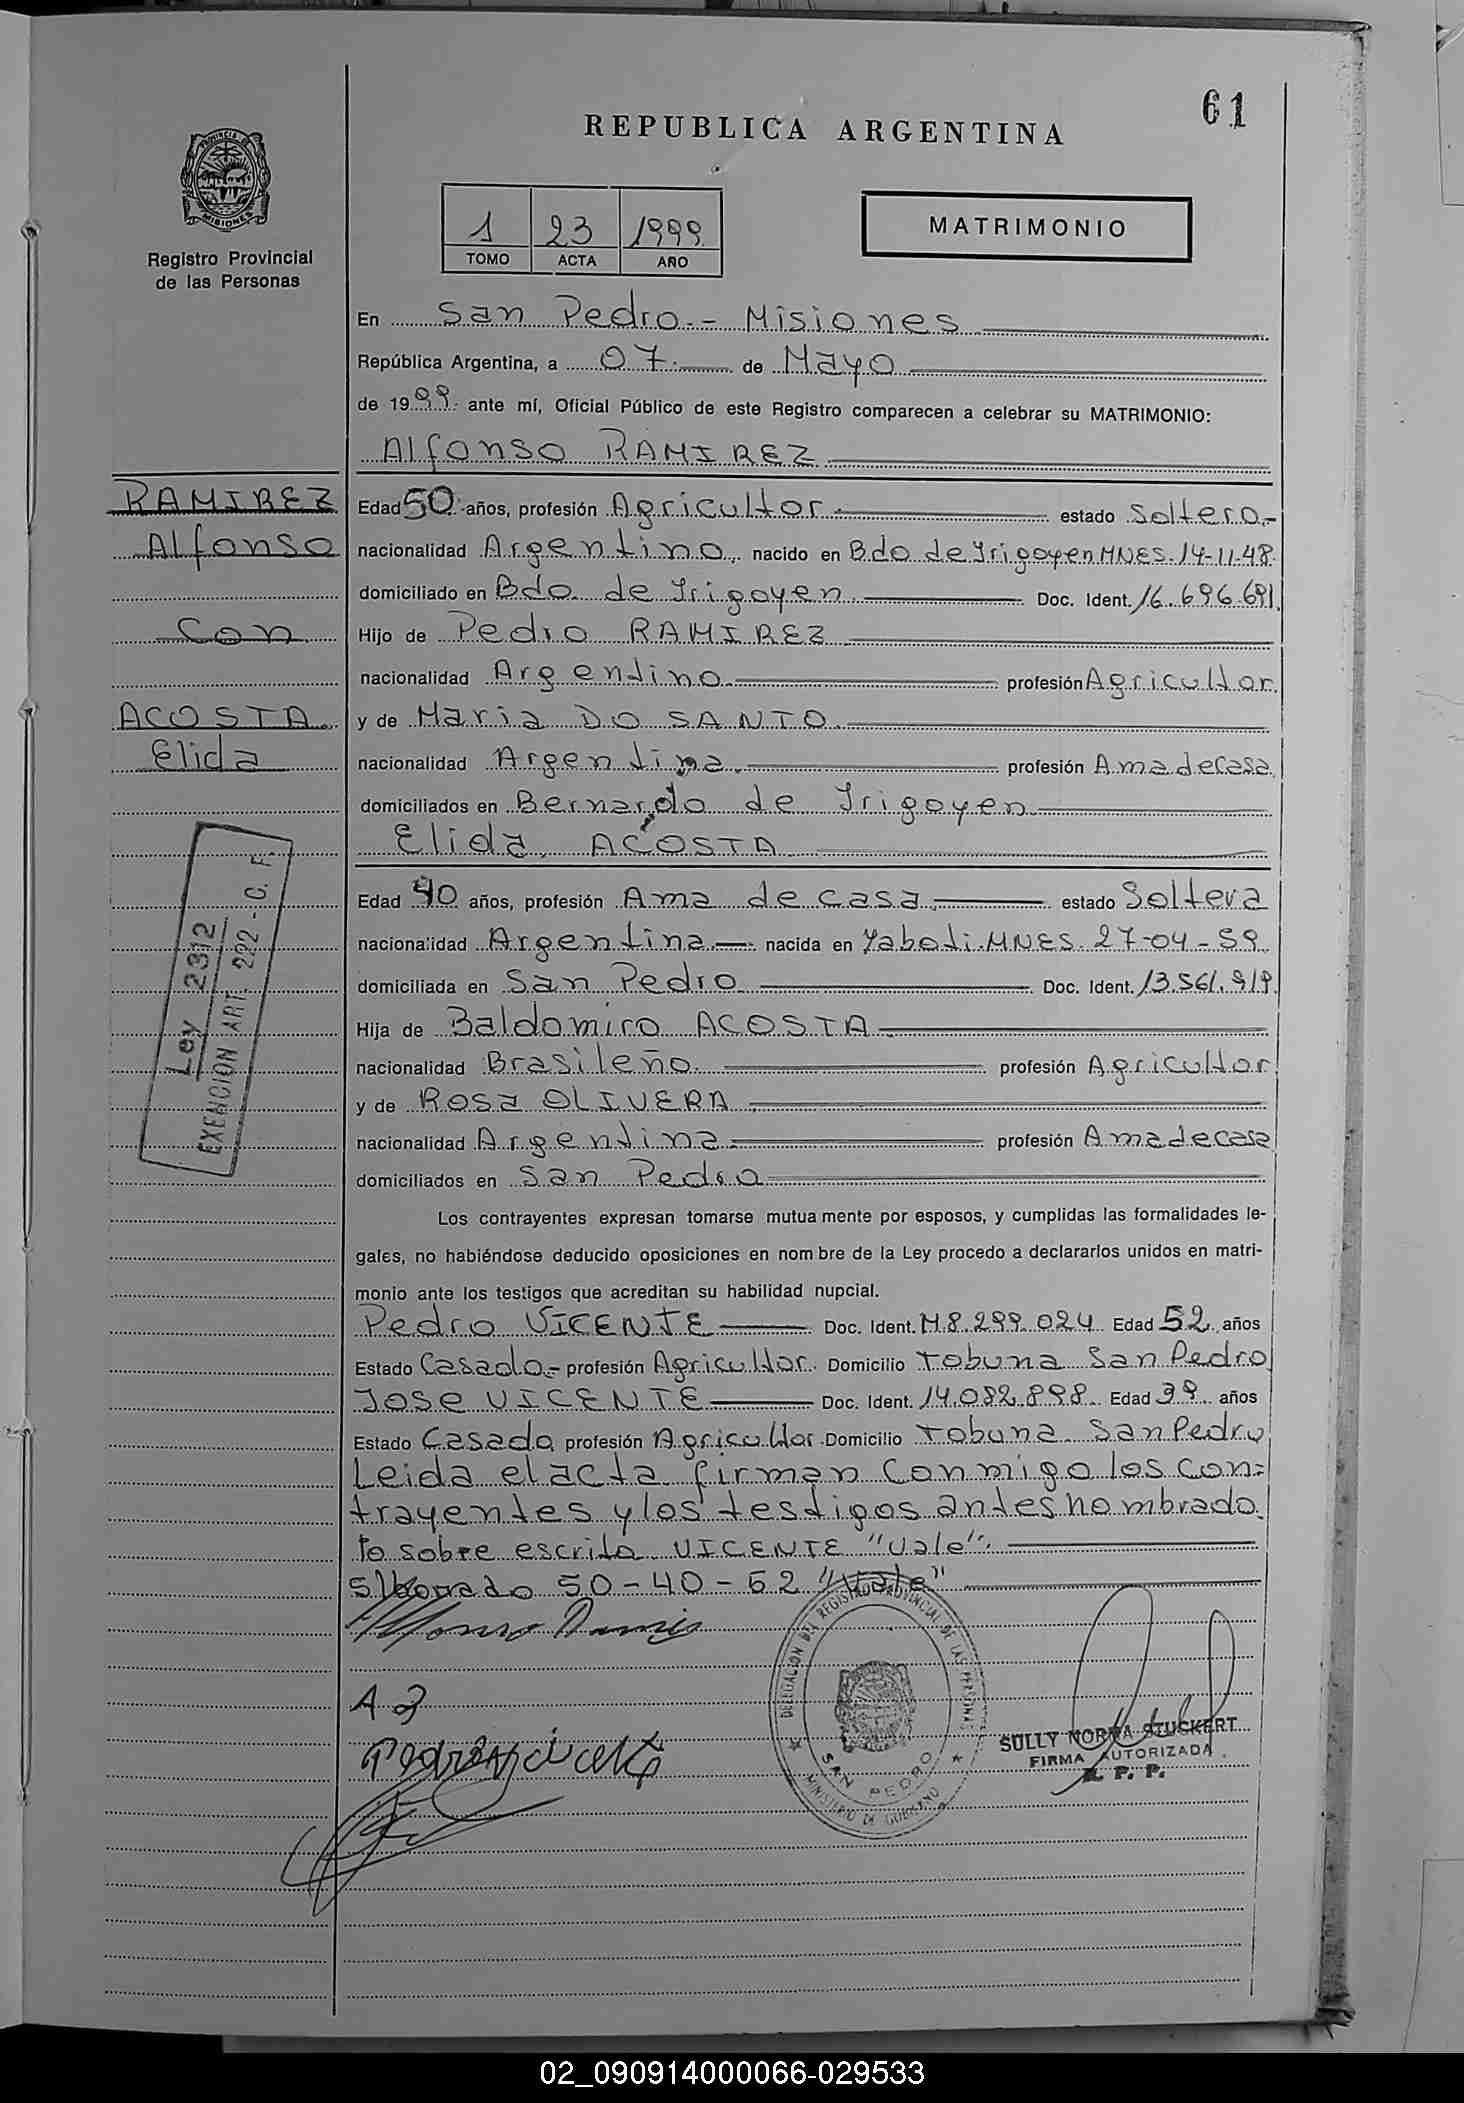 61
REPUBLICA ARGENTINA
PROVINCIA DE MISIONES
Registro Provincial
de las Personas
1 23 1999
TOMO ACTA AÑO
MATRIMONIO
En San Pedro.- Misiones
República Argentina, a 07 de Mayo
de 1999 ante mí, Oficial Público de este Registro comparecen a celebrar su MATRIMONIO:
Alfonso RAMIREZ
RAMIREZ
Alfonso
con
ACOSTA
Elida
Edad 50 años, profesión Agricultor estado Soltero.-
nacionalidad Argentino nacido en Bdo de Irigoyen MNES. 14-11-48
domiciliado en Bdo. de Irigoyen Doc. Ident. 16.696.691
Hijo de Pedro RAMIREZ
nacionalidad Argentino profesión Agricultor
y de Maria DO SANTO
nacionalidad Argentina profesión Ama de Casa
domiciliados en Bernardo de Irigoyen
Elida ACOSTA
Edad 40 años, profesión Ama de casa estado Soltera
nacionalidad Argentina nacida en Yaboti. MNES. 27-04-59
domiciliada en San Pedro Doc. Ident. 13.561.919
Hija de Baldomiro ACOSTA
nacionalidad Brasileño profesión Agricultor
y de Rosa OLIVERA
nacionalidad Argentina profesión Ama de casa
domiciliados en San Pedro
Ley 2312
EXENCION ART. 222 - C. F.
Los contrayentes expresan tomarse mutuamente por esposos, y cumplidas las formalidades le-
gales, no habiéndose deducido oposiciones en nombre de la Ley procedo a declararlos unidos en matri-
monio ante los testigos que acreditan su habilidad nupcial.
Pedro VICENTE Doc. Ident. M 8.299.024 Edad 52 años
Estado Casado.- profesión Agricultor Domicilio Tobuna San Pedro
Jose VICENTE Doc. Ident. 14.082.898 Edad 39 años
Estado Casado profesión Agricultor Domicilio Tobuna San Pedro
Leida el acta firman conmigo los con=
trayentes y los testigos antes nombrado
to sobre escrito VICENTE "Vale".
S/borrado 50-40-52 "Vale"
Alfonso Ramis
DELEGACION DEL REGISTRO PROVINCIAL DE LAS PERSONAS
SAN PEDRO
MINISTERIO DE GOBIERNO
SULLY NORMA STUCKERT
FIRMA AUTORIZADA
R. P. P.
02_090914000066-029533